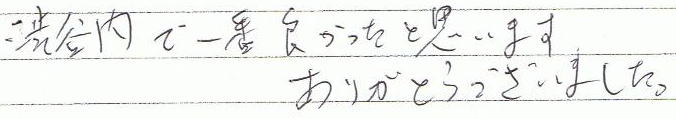 渋谷内で一番良かったと思います
ありがとうございました。